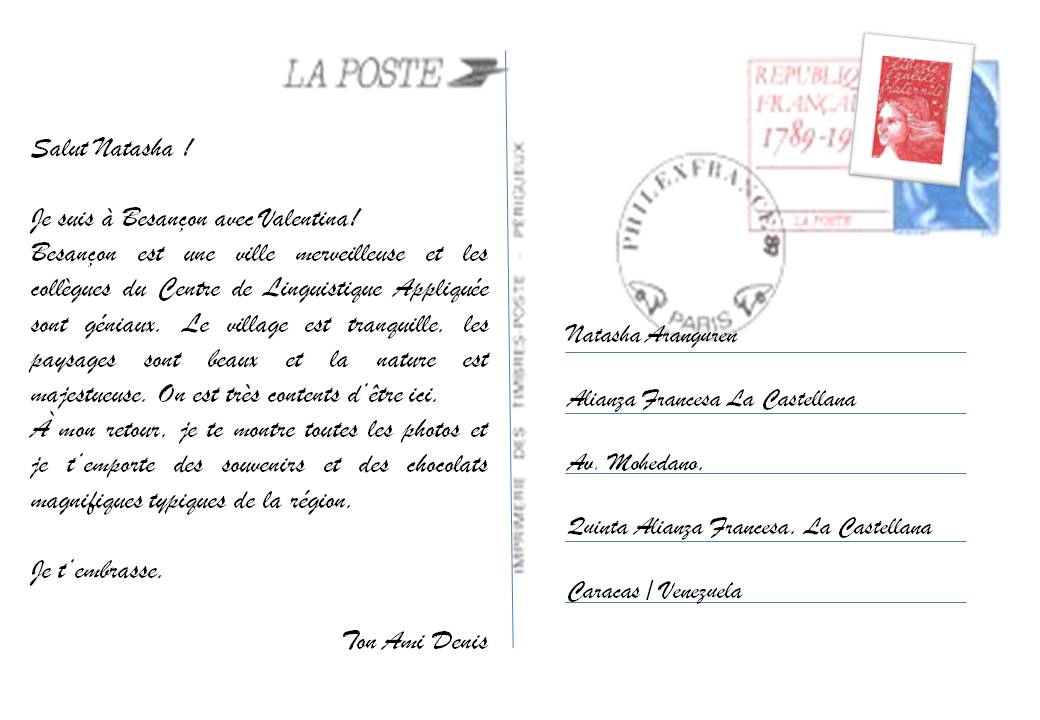 LA POSTE
Salut Natasha !
Je suis à Besançon avec Valentina!
Besançon est une ville merveilleuse et les
collègues du Centre de Linguistique Appliquée
sont géniaux. Le village est tranquille, les
paysages sont beaux et la nature est
majestueuse. On est très contents d'être ici.
À mon retour, je te montre toutes les photos et
je t'emporte des souvenirs et des chocolats
magnifiques typiques de la région.
Je t'embrasse,
Ton Ami Denis
IMPRIMERIE DES TIMBRES-POSTE - PÉRIGUEUX
REPUBLIQ
FRANÇAI
1789-19
LA POSTE
liberté
égalité
fraternité
PHILEXFRANCE 89
PARIS
Natasha Aranguren
Alianza Francesa La Castellana
Av. Mohedano,
Quinta Alianza Francesa, La Castellana
Caracas / Venezuela